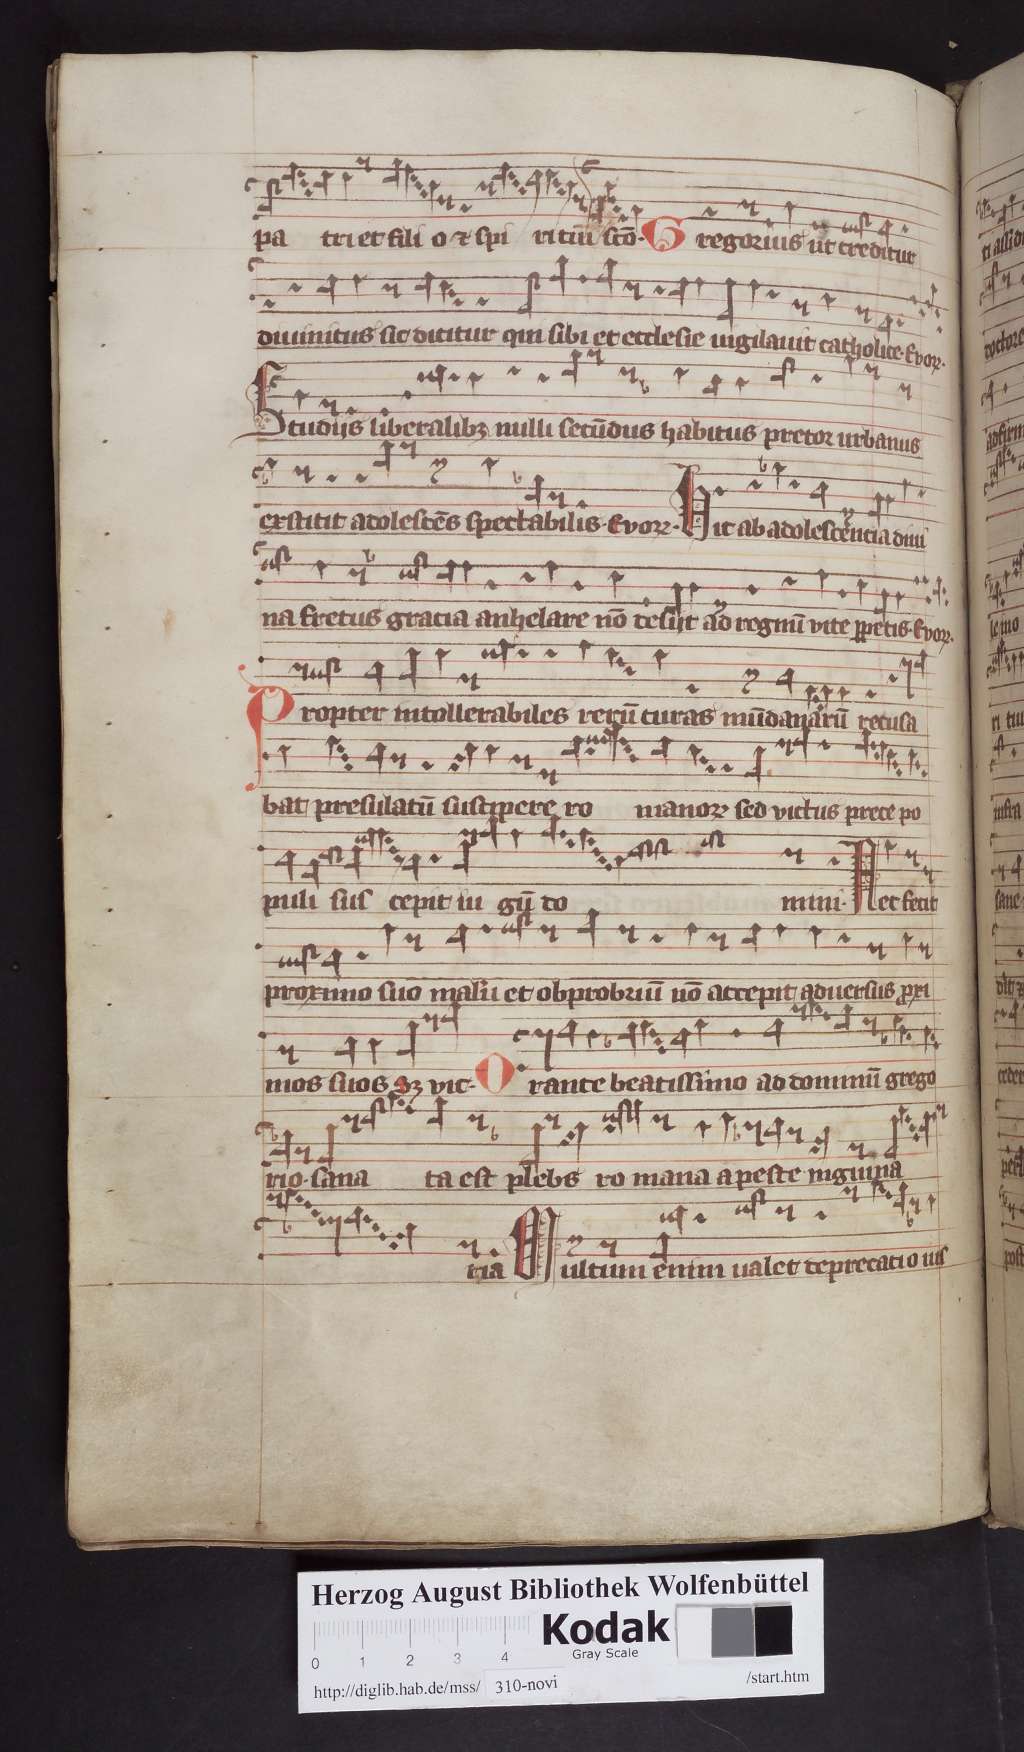 pa tri et fili o et spi ritui scō. Gregorius ut creditur
diuinitus sic dicitur qui sibi et ecclesie uigilauit catholice. Evoꝝ.
Studiis liberalibꝫ nulli secūdus habitus pretor urbanus
exstitit adolescēs spectabilis. Evoꝝ. Hic ab adolescencia diui
na fretus gracia anhelare nō desiit ad regnū vite ꝑpetis. Evoꝝ.
Propter intollerabiles rerū curas mūdanarū recusa
bat presulatū suscipere ro manoꝝ sed victus prece po
puli sus cepit iu gū do mini. Nec fecit
proximo suo malū et obprobriū nō accepit aduersus ꝓxi
mos suos Sꝫ vic. Orante beatissimo ad dominū grego
rio. sana ta est plebs ro mana a peste inguina
ria Multum enim ualet deprecatio ius
Herzog August Bibliothek Wolfenbüttel
Kodak
Gray Scale
0 1 2 3 4
http://diglib.hab.de/mss/ 310-novi /start.htm